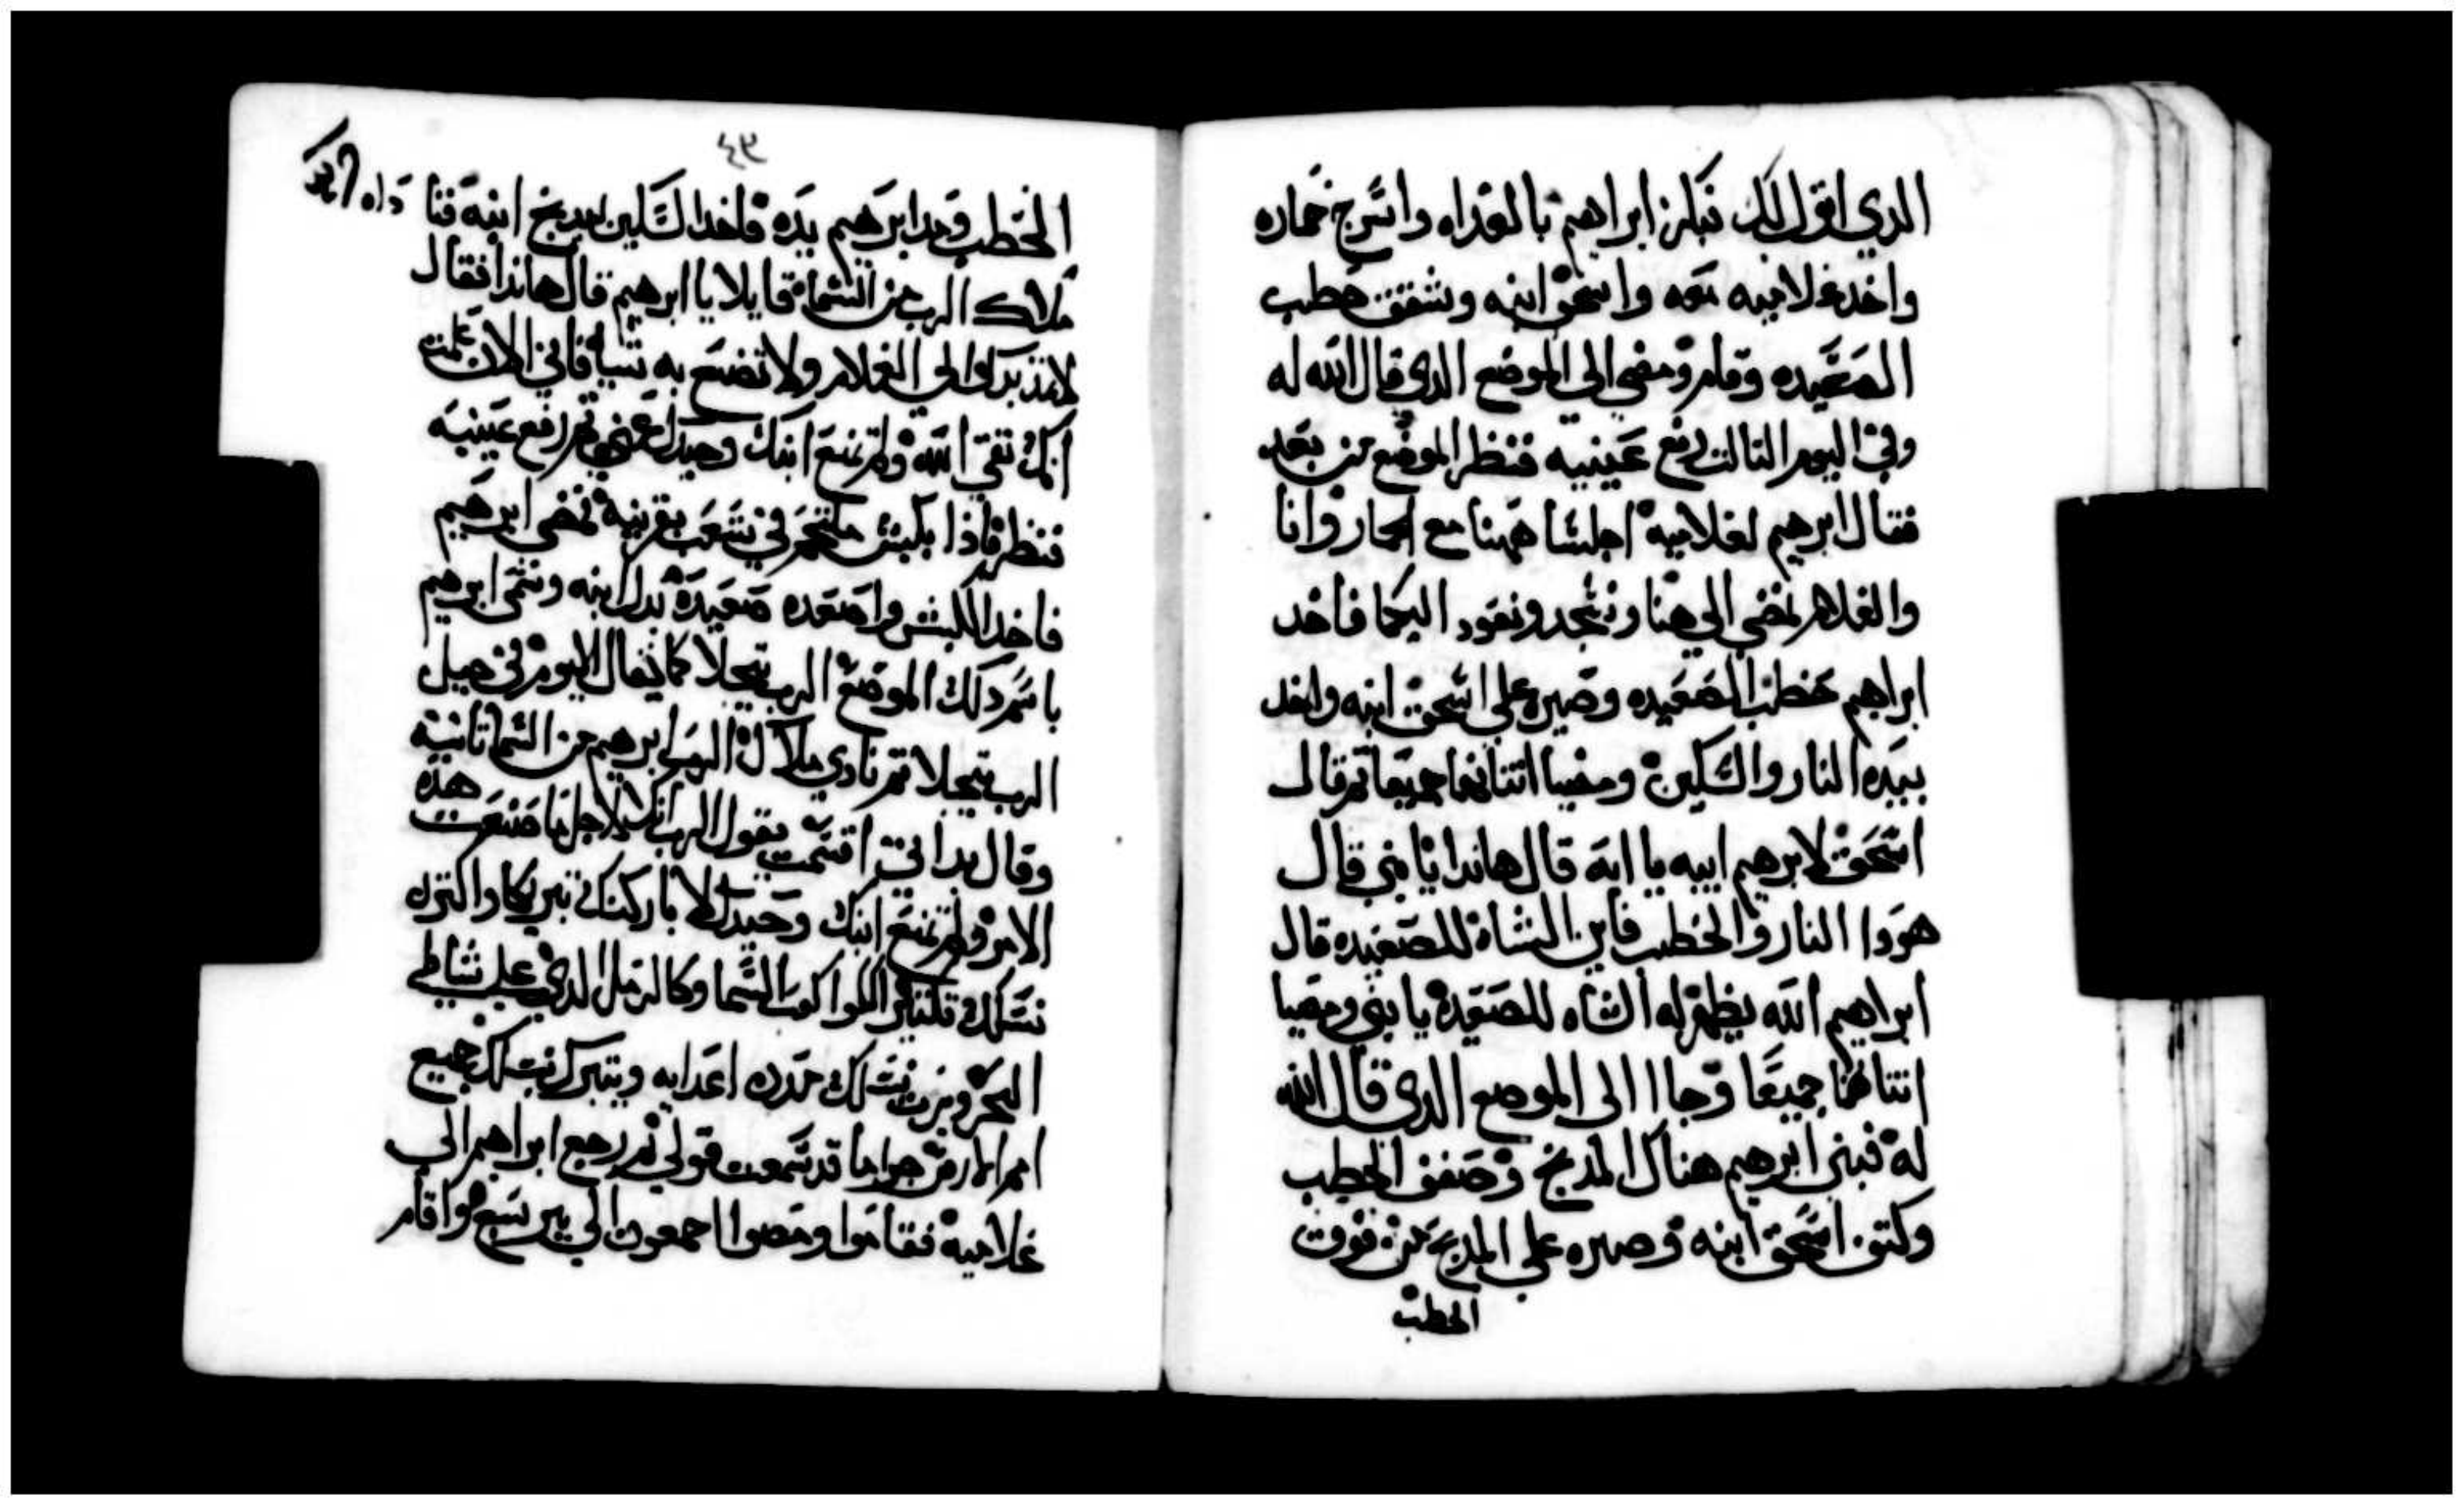 الدي اقول لك فبكر ابراهيم بالغداه واسرج حماره
واخد غلاميه معه واسحق ابنه وشقق حطب
الصعيده وقام ومضي الي الموضع الدي قال الله له
وفي اليوم التالت رفع عينيه فنظر الموضع من بعد
فقال ابرهيم لغلاميه اجلسا ههنا مع الحمار وانا
والغلام نمضي الي هنا ونسجد ونعود اليكما فاخد
ابراهيم حطب الصعيده وصيره علي اسحق ابنه واخد
بيده النار والسكين ومضيا اتنانهما جميعا تم قال
اسحق لابرهيم ابيه يا ابه قال هاندا يا بني قال
هودا النار والحطب فاين الشاة للصعيده قال
ابراهيم الله يظهر له الشاه للصعيدة يا بني ومضيا
اتنانهما جميعا وجاا الى الموضع الدي قال الله
له فبنى ابرهيم هناك المدبح وصفف الحطب
وكتف اسحق ابنه وصيره علي المدبح من فوق
الحطب
٤٣
الحطب ومد ابرهيم يده فاخد السكين ليدبح ابنه فنا
داه
ملاك الرب من السماء قايلا يا ابرهيم قال هاندا فقال
لا تمد يدك الي الغلام ولا تصنع به شيا فاني الان علمت
انك تتقي الله ولم تمنع ابنك وحيدك عني تم رفع عينيه
فنظر فاذا بكبش ملتحم في شعب بقرنيه فمضي ابرهيم
فاخد الكبش واصعده صعيدة بدل ابنه وسمى ابرهيم
باسم دلك الموضع الرب تجلا كما يقال اليوم في جبل
الرب تجلا تم نادي ملاك الرب ابرهيم من السما تانية
وقال بداتي اقسمت يقول الرب انك لاجل ما صنعت هده
الامر ولم تمنع ابنك وحيدك لاباركنك تبريكا واكترن
نسلك تكتير الكواكب السما وكالرمل الدي علي شاطي
البحر ويرث نسلك مدن اعدايه ويتبرك بنسلك جميع
امم الارض جوا ما قد سمعت قولي تم رجع ابراهيم الى
غلاميه فقاموا ومضوا اجمعون الي بير سبع واقام